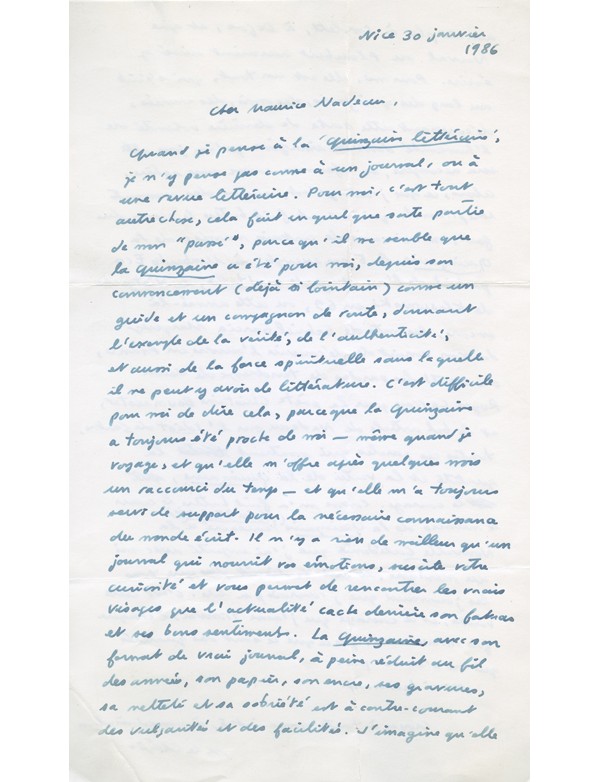 Nice 30 janvier
1986
Cher Maurice Nadeau,
Quand je pense à la 'Quinzaine littéraire',
je n'y pense pas comme à un journal, ou à
une revue littéraire. Pour moi, c'est tout
autre chose, cela fait en quelque sorte partie
de mon "passé", parce qu'il me semble que
la Quinzaine a été pour moi, depuis son
commencement (déjà si lointain) comme un
guide et un compagnon de route, donnant
l'exemple de la vérité, de l'authenticité,
et aussi de la force spirituelle sans laquelle
il ne peut y avoir de littérature. C'est difficile
pour moi de dire cela, parce que la Quinzaine
a toujours été proche de moi – même quand je
voyage, et qu'elle m'offre après quelques mois
un raccourci du temps – et qu'elle m'a toujours
servi de support pour la nécessaire connaissance
du monde écrit. Il n'y a rien de meilleur qu'un
journal qui nourrit vos émotions, suscite votre
curiosité et vous permet de rencontrer les vrais
visages que l'actualité cache derrière son fatras
et ses bons sentiments. La Quinzaine, avec son
format de vrai journal, à peine réduit au fil
des années, son papier, son encre, ses gravures,
sa netteté et sa sobriété est à contre-courant
des vulgarités et des facilités. J'imagine qu'elle